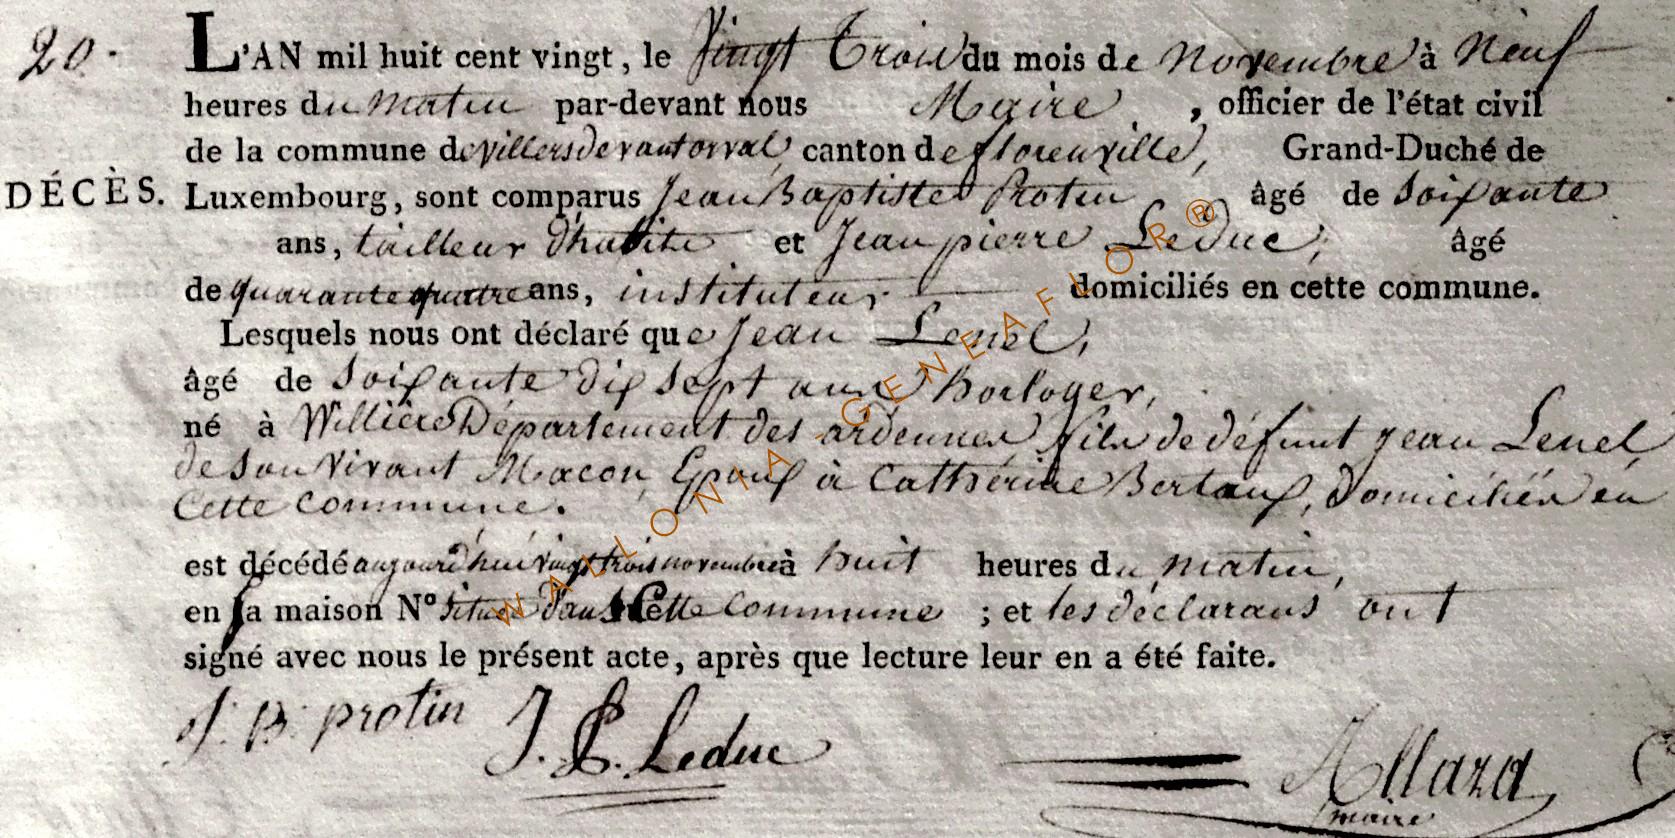 20.
L'AN mil huit cent vingt, le Vingt Trois du mois de Novembre à Neuf
heures du matin par-devant nous Maire, officier de l'état civil
de la commune de villers devant orval, canton de florenville, Grand-Duché de
DÉCÈS. Luxembourg, sont comparus Jean Baptiste Protin âgé de Soixante
ans, tailleur d'habits et Jean pierre Leduc, âgé
de quarante quatre ans, instituteur domiciliés en cette commune.
Lesquels nous ont déclaré que Jean Lenel,
âgé de Soixante dix sept ans horloger,
né à Williers Département des ardennes fils de défunt jean Lenel,
de son vivant Macon, Epoux à Catherine Bertaux, domiciliés en
Cette commune.
est décédé aujourd'hui vingt trois novembre à huit heures du matin,
en sa maison N° située dans Cette commune ; et les déclarans ont
signé avec nous le présent acte, après que lecture leur en a été faite.
J. B. protin J. P. Leduc
Allard
maire
WALLONIA-GENEAFLOR®